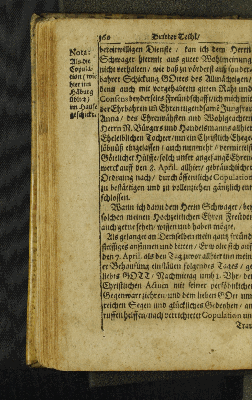 360 Dritter Theil/
Nota:
Als die
Copula-
tion (wie
hier im
Hamburg
üblich)
im Hause
geschicht.
bereitwilligen Dienste / kan ich dem Herrn
Schwager hiermit aus guter Wohlmeinung
nicht verhalten / wie daß zuvörderst auß sonder-
bahrer Schickung GOttes des Allmächtigen /
dann auch mit vorgehabtem guten Raht und
Consens beyderseits Freundschafft / ich mich mit
der Ehrbahren und Ehren tugendsamen Jungfrau
Anna / des Ehrenvesten und Wohlgeachten
Herrn N. Bürgers und Handelsmanns allhier
Eheleiblichen Tochter / in ein Christlich Ehege-
lübnüß eingelassen / auch nunmehr / vermittelst
Göttlicher Hülffe / solch unser angefangt Ehren-
werck auff den 7. April. allhier / gebräuchlicher
Ordnung nach / durch öffentliche Copulation
zu bestätigen und zu vollenziehen gäntzlich ent-
schlossen.
Wann ich dann dem Herrn Schwager / bey
solchen meinen Hochzeitlichen Ehren Freuden
auch gerne sehen / wissen und haben möchte.
Als gelanget an Denselben mein gantz freund-
fleissiges ansinnen und bitten / Er wolle sich auff
den 7. April. als den Tag zuvor allhier in meine
er Behausung einstellen folgendes Tages / ge-
liebts GOTT / Nachmittag umb 1. Uhr / den
Christlichen Actum mit seiner persöhnlichen
Gegenwart zieren / und dem lieben GOtt umb
reichen Segen und glückliches Gedeyhen / an-
ruffen helffen / nach verrichteter Copulation und
Trau-